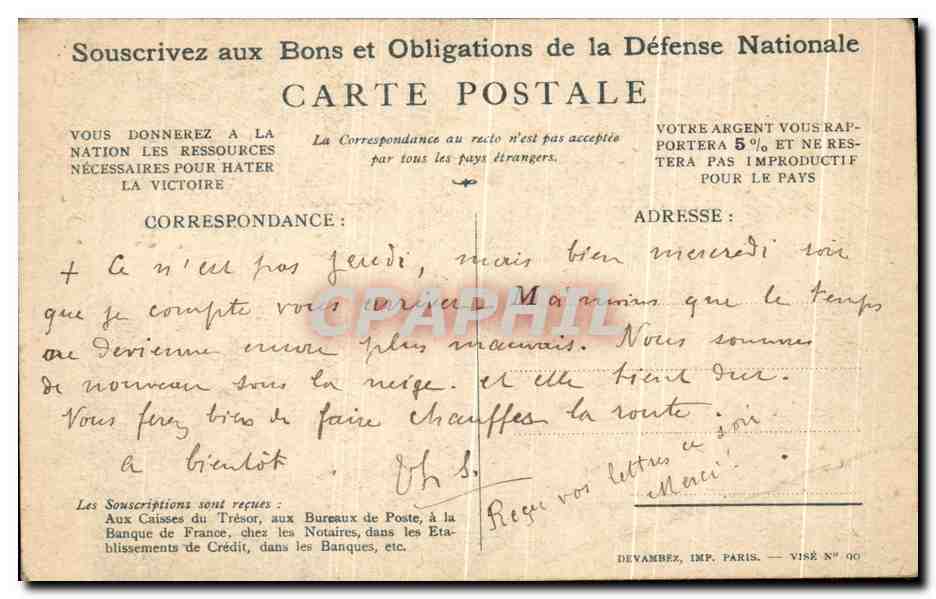 Souscrivez aux Bons et Obligations de la Défense Nationale
CARTE POSTALE
VOUS DONNEREZ A LA
NATION LES RESSOURCES
NÉCESSAIRES POUR HATER
LA VICTOIRE
La Correspondance au recto n'est pas acceptée
par tous les pays étrangers.
VOTRE ARGENT VOUS RAP-
PORTERA 5% ET NE RES-
TERA PAS IMPRODUCTIF
POUR LE PAYS
CORRESPONDANCE :
ADRESSE :
+ Ce n'est pas Jeudi, mais bien mercredi soir
que je compte vous arriver - à moins que le temps
ne devienne encore plus mauvais. Nous sommes
de nouveau sous la neige. et elle tient dur.
Vous ferez bien de faire chauffer la route.
a bientôt.
Reçu vos lettres ce soir
Merci!
CPAPHIL
Les Souscriptions sont reçues :
Aux Caisses du Trésor, aux Bureaux de Poste, à la
Banque de France, chez les Notaires, dans les Eta-
blissements de Crédit, dans les Banques, etc.
DEVAMBEZ, IMP. PARIS. — VISÉ N° 90